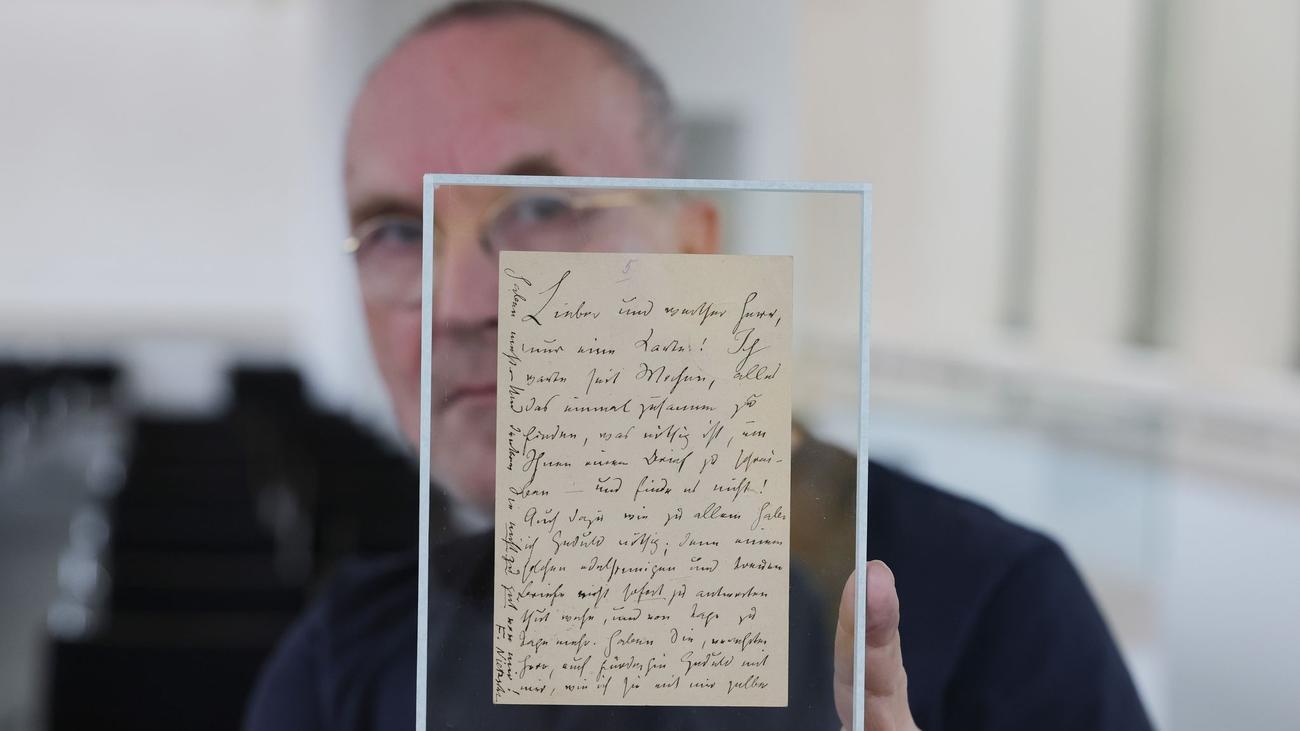 5
Lieber und werther Herr,
nur eine Karte! Ich
warte seit Wochen, alles
das einmal zusammen zu
finden, was nöthig ist, um
Ihnen einen Brief zu schrei-
ben — und finde es nicht!
Auch dazu wie zu allem habe
ich Geduld nöthig; denn einem
solchen edelsinnigen und
Briefe nicht sofort zu antworten
thut wehe, und von Tage zu
Tage mehr. Haben Sie, verehrter
Herr, auch fürderhin Geduld mit
mir, wie ich sie mit mir selber
haben und denken Sie nicht zu gut von mir!
F. Nietzsche